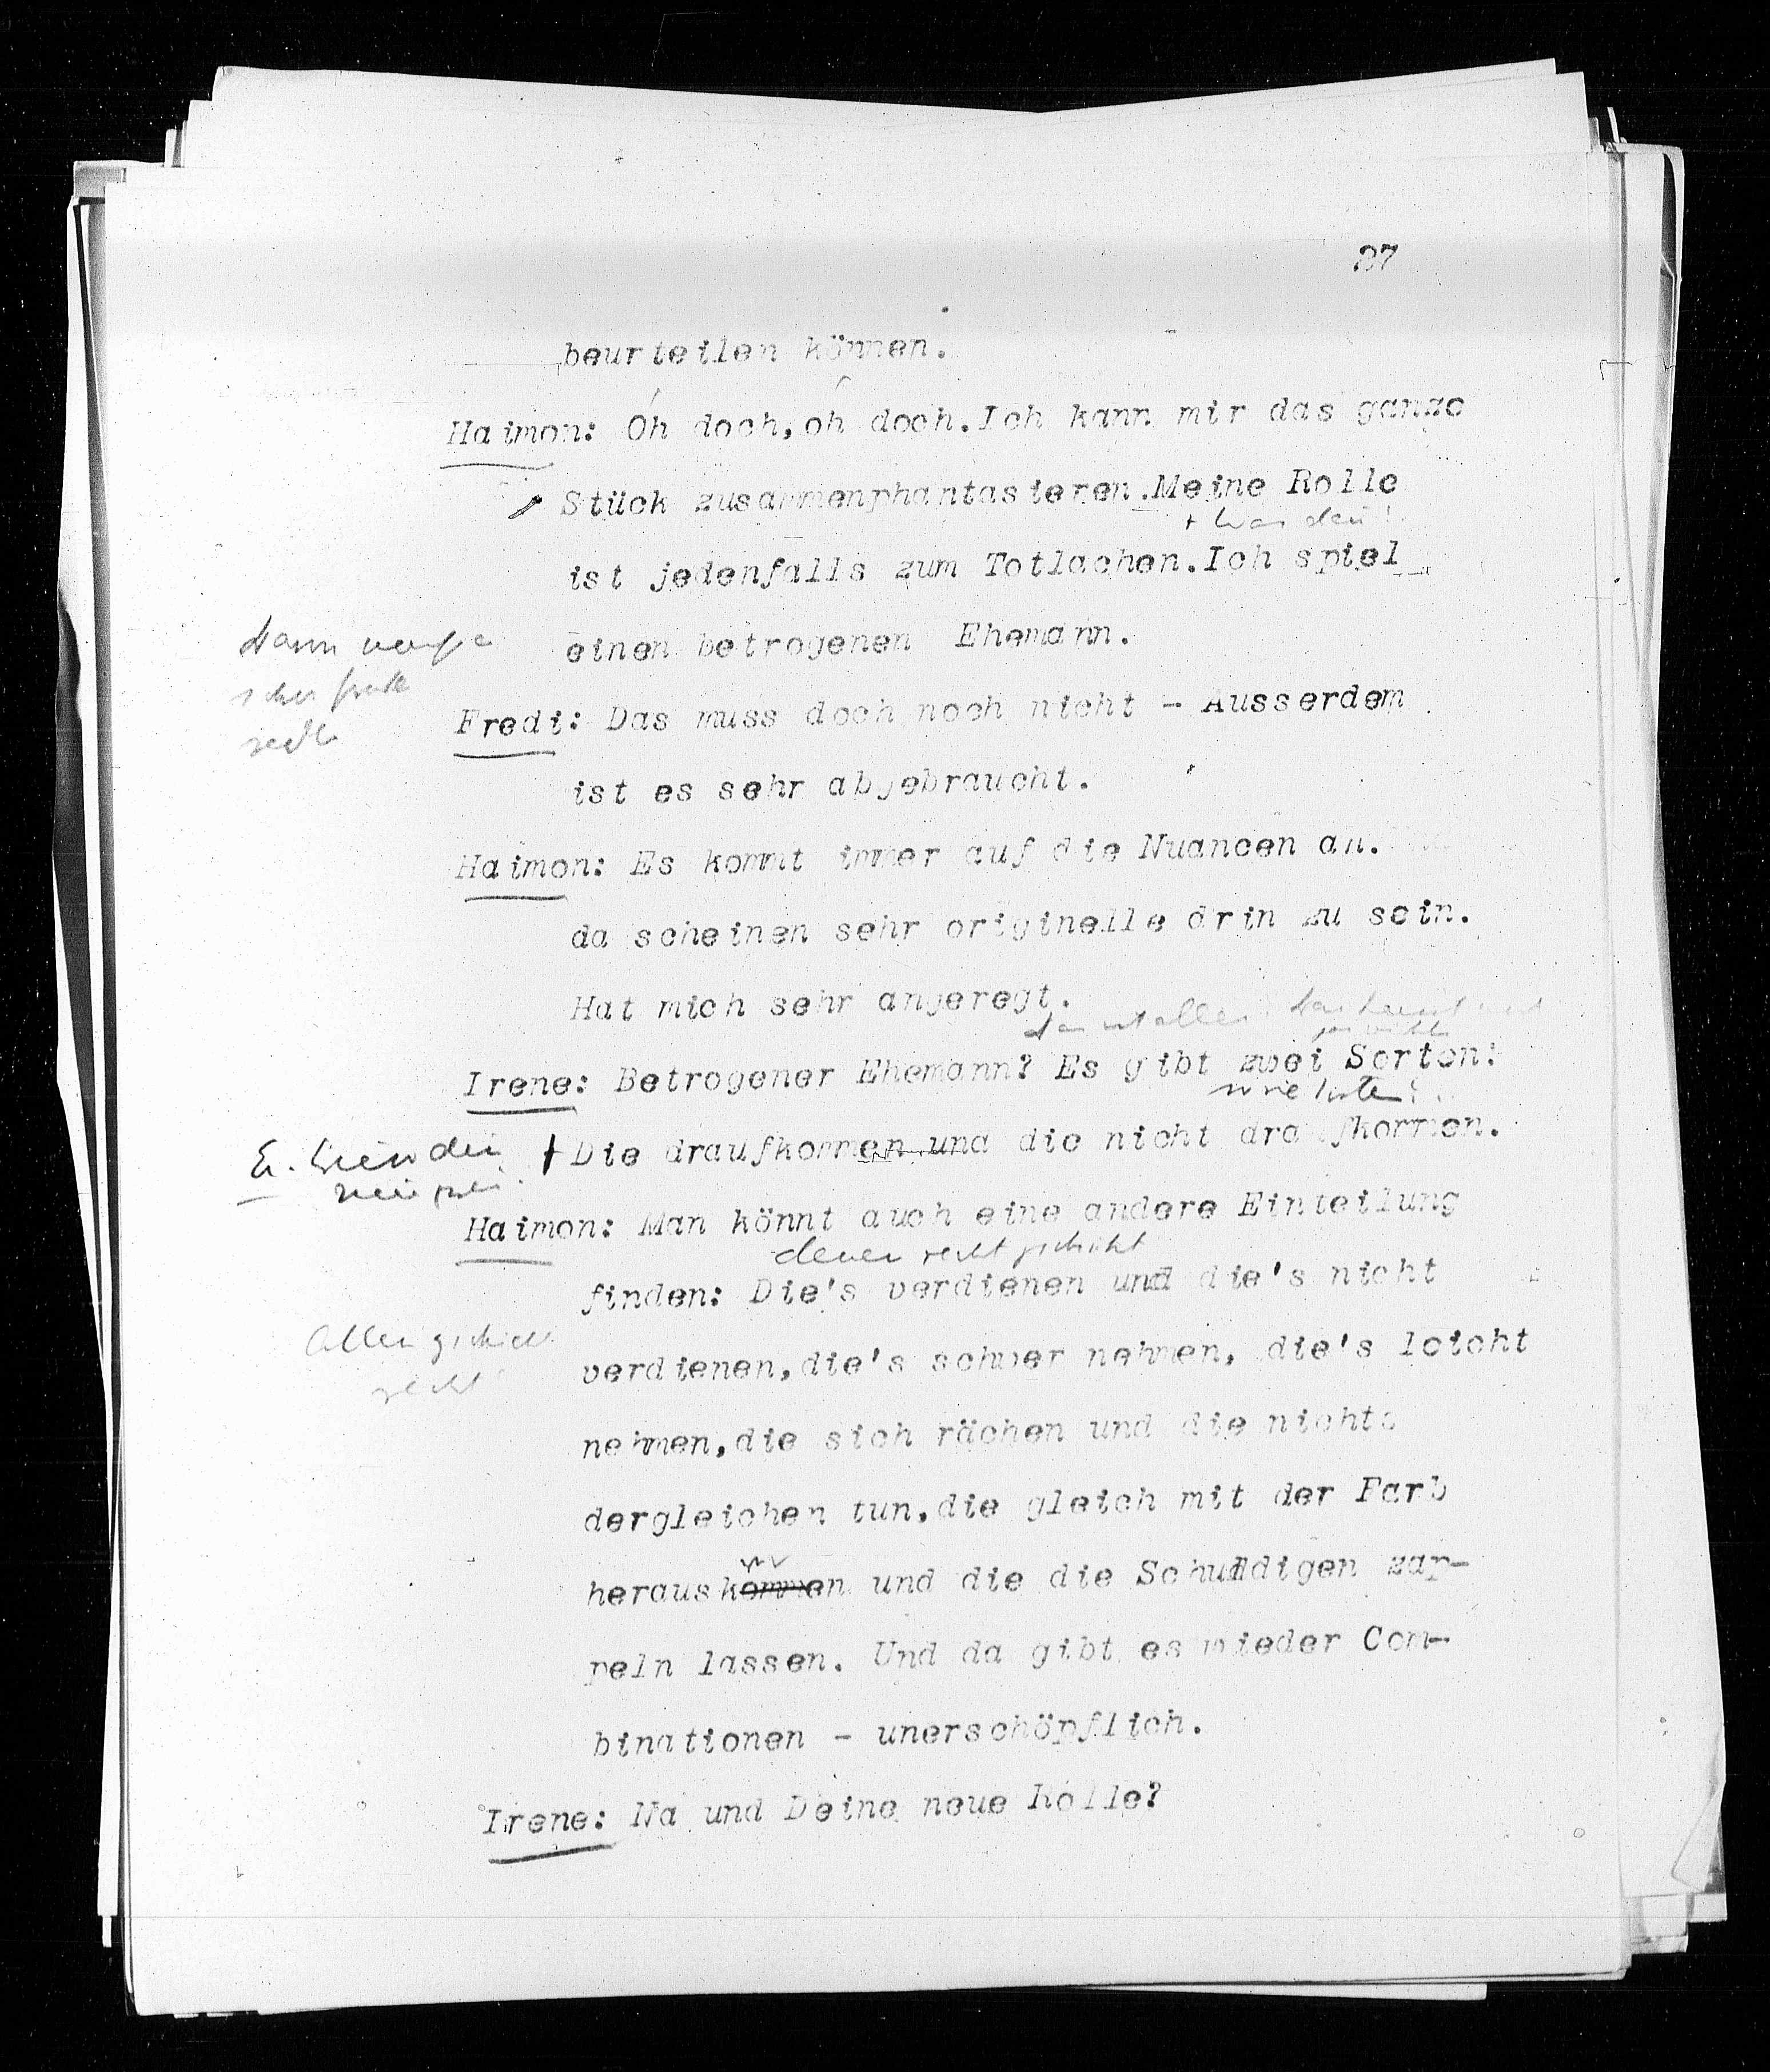 87
beurteilen können.
Haimon: Oh doch,oh doch.Ich kann mir das ganze
Stück zusammenphantasieren.Meine Rolle
ist jedenfalls zum Totlachen.Ich spiel
einen betrogenen Ehemann.
Fredi: Das muss doch noch nicht - Ausserdem
ist es sehr abgebraucht.
Haimon: Es kommt immer auf die Nuancen an.
da scheinen sehr originelle drin zu sein.
Hat mich sehr angeregt.
Irene: Betrogener Ehemann? Es gibt zwei Sorten:
Die draufkommen und die nicht draufkommen.
Haimon: Man könnt auch eine andere Einteilung
denen recht geschieht
finden: Die's verdienen und die's nicht
Allen geschieht
recht
verdienen,die's schwer nehmen, die's leicht
nehmen,die sich rächen und die nichts
dergleichen tun,die gleich mit der Farb
herauskommen und die die Schuldigen zap-
peln lassen. Und da gibt es wieder Com-
binationen - unerschöpflich.
Irene: Na und Deine neue Rolle?